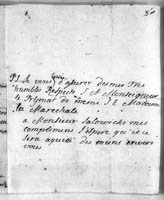 P.S. Je vous d'assurer de mes Tres
humbles Respects S A Monseigneur
le Primat de meme S E Madame
la Marechale
a Monsieur Salowicki mes
compliments J'espere qu'il
sera aquité des miens envers
vous